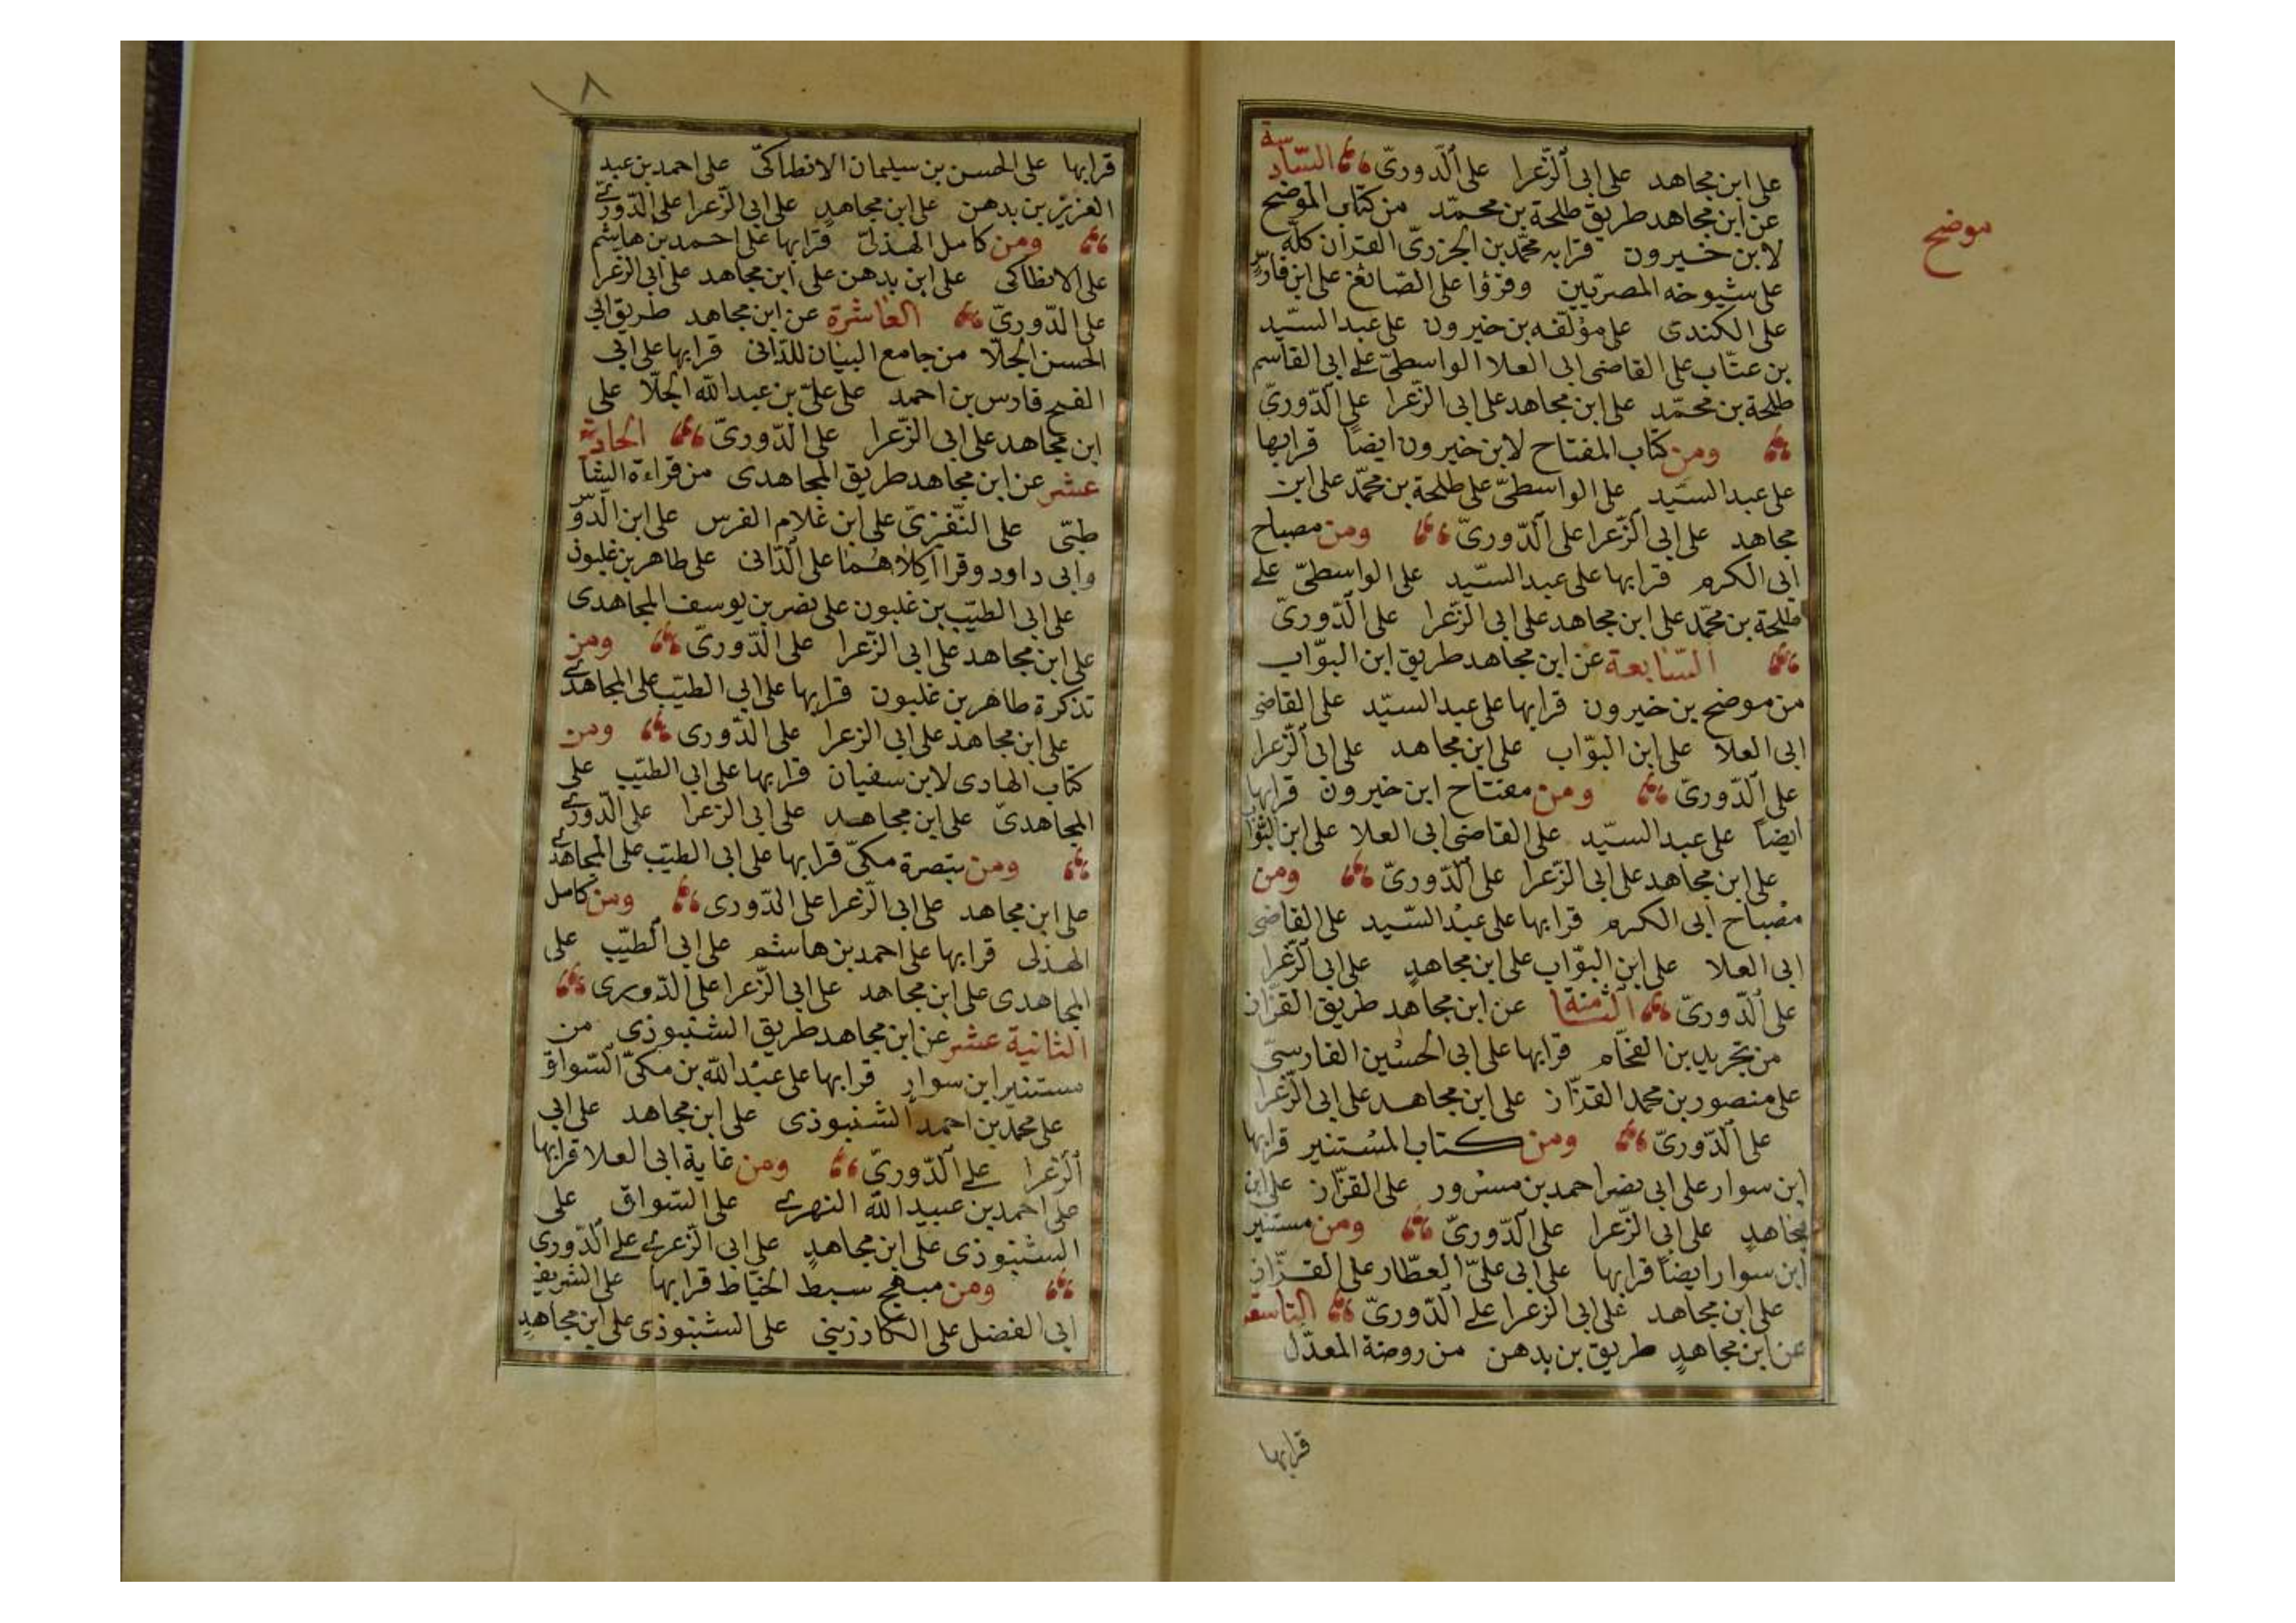 على ابن مجاهد على ابى الزّعرا على الدّورىّ السّادسة
عن ابن مجاهد طريق طلحة بن محمّد من كتاب الموضح
موضح
لابن خيرون قرا به محمّد بن الجزرىّ القران كلّه
على شيوخه المصريّين وقرؤا على الصّائغ على ابن فارس
على الكندى على مؤلفه بن خيرون على عبد السيّد
بن عتّاب على القاضى ابى العلا الواسطىّ على ابى القاسم
طلحة بن محمّد على ابن مجاهد على ابى الزّعرا على الدّورىّ
ومن كتاب المفتاح لابن خيرون ايضاً قرا بها
على عبد السيّد على الواسطىّ على طلحة بن محمّد على ابن
مجاهد على ابى الزّعرا على الدّورىّ ومن مصباح
ابى الكرم قرا بها على عبد السيّد على الواسطىّ على
طلحة بن محمّد على ابن مجاهد على ابى الزّعرا على الدّورىّ
السّابعة عن ابن مجاهد طريق ابن البوّاب
من موضح بن خيرون قرا بها على عبد السيّد على القاضى
ابى العلا على ابن البوّاب على ابن مجاهد على ابى الزّعرا
على الدّورىّ ومن مفتاح ابن خيرون قرا بها
ايضاً على عبد السيّد على القاضى ابى العلا على ابن البوّاب
على ابن مجاهد على ابى الزّعرا على الدّورىّ ومن
مصباح ابى الكرم قرا بها على عبد السّيد على القاضى
ابى العلا على ابن البوّاب على ابن مجاهدٍ على ابى الزّعرا
على الدّورىّ الثّامنة عن ابن مجاهد طريق القزّاز
من تجريد بن الفحّام قرا بها على ابى الحسين الفارسىّ
على منصور بن محمد القزّاز على ابن مجاهد على ابى الزّعرا
على الدّورىّ ومن كتاب المستنير قرا بها
ابن سوار على ابى نصر احمد بن مسرور على القزّاز على ابن
مجاهدٍ على ابى الزّعرا على الدّورىّ ومن مستنير
ابن سوار ايضاً قرا بها على ابى علىّ العطّار على القزّاز
على ابن مجاهد على ابى الزّعرا على الدّورىّ التاسعة
عن ابن مجاهدٍ طريق بن بدهن من روضة المعدّل
قرا بها
٨
قرا بها على الحسن بن سليمان الانطاكىّ على احمد بن عبد
العزيز بن بدهن على ابن مجاهدٍ على ابى الزّعرا على الدّورى
ومن كامل الهذلىّ قرا بها على احمد بن هاشم
على الانطاكى على ابن بدهن على ابن مجاهد على ابى الزعرا
على الدّورىّ العاشرة عن ابن مجاهد طريق ابى
الحسن الجلّا من جامع البيان للدّانى قرا بها على ابى
الفتح فارس بن احمد على علىّ بن عبد الله الجلّا على
ابن مجاهد على ابى الزّعرا على الدّورىّ الحادية
عشر عن ابن مجاهد طريق المجاهدى من قراءة الشا
طبّى على النّفزىّ على ابن غلام الفرس على ابن الدّوّ
وابى داود وقرا كلاهما على الدّانى على طاهر بن غلبون
على ابى الطيّب بن غلبون على نصر بن يوسف المجاهدى
على ابن مجاهد على ابى الزّعرا على الدّورىّ ومن
تذكرة طاهر بن غلبون قرا بها على ابى الطيّب على المجاهدى
على ابن مجاهد على ابى الزعرا على الدّورى ومن
كتاب الهادى لابن سفيان قرا بها على ابى الطيّب على
المجاهدىّ على ابن مجاهد على ابى الزعرا على الدّورى
ومن تبصرة مكىّ قرا بها على ابى الطيّب على المجاهدى
على ابن مجاهد على ابى الزّعرا على الدّورى ومن كامل
الهذلى قرا بها على احمد بن هاشم على ابى الطيّب على
المجاهدى على ابن مجاهد على ابى الزّعرا على الدّورى
الثانية عشر عن ابن مجاهد طريق الشنبوذى من
مستنير ابن سوار قرا بها على عبد الله بن مكىّ السّواق
على محمّد بن احمد الشنبوذى على ابن مجاهد على ابى
الزعرا على الدّورىّ ومن غاية ابى العلا قرا بها
على احمد بن عبيد الله النهرى على السّواق على
الشنبوذى على ابن مجاهدٍ على ابى الزعرى على الدّورى
ومن مبهج سبط الخيّاط قرا بها على الشريف
ابى الفضل على الكارزينى على الشنبوذى على ابن مجاهدٍ